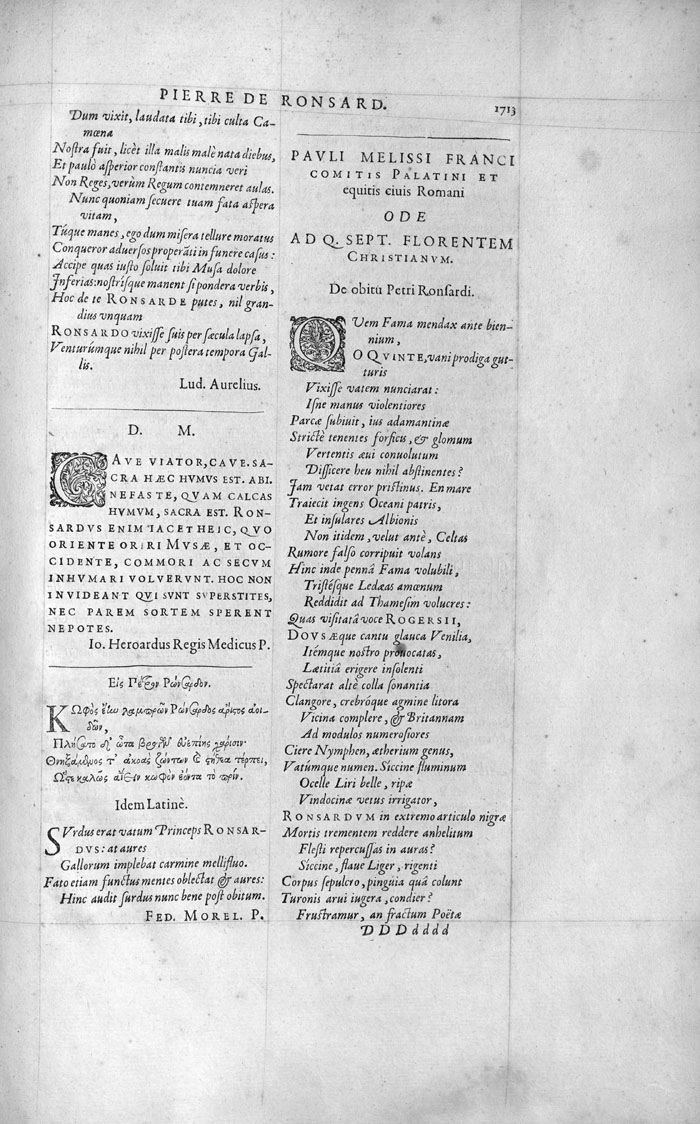 PIERRE DE RONSARD. 1713
Dum vixit, laudata tibi, tibi culta Ca-
mœna
Nostra fuit, licèt illa malis malè nata diebus,
Et paulò asperior constantis nuncia veri
Non Reges, verùm Regum contemneret aulas.
Nunc quoniam secuere tuam fata aspera
vitam,
Túque manes, ego dum misera tellure moratus
Conqueror aduersos properāti in funere casus:
Accipe quas iusto soluit tibi Musa dolore
Inferias: nostrísque manent si pondera verbis,
Hoc de te RONSARDE putes, nil gran-
dius vnquam
RONSARDO vixisse suis per sæcula lapsa,
Venturúmque nihil per postera tempora Gal-
lis.
Lud. Aurelius.
D. M.
CAVE VIATOR, CAVE. SA-
CRA HÆC HVMVS EST. ABI.
NEFASTE, QVAM CALCAS
HVMVM, SACRA EST. RON-
SARDVS ENIM IACET HEIC, QVO
ORIENTE ORIRI MVSÆ, ET OC-
CIDENTE, COMMORI AC SECVM
INHVMARI VOLVERVNT. HOC NON
INVIDEANT QVI SVNT SVPERSTITES,
NEC PAREM SORTEM SPERENT
NEPOTES.
Io. Heroardus Regis Medicus P.
Εἰς Πέτρον Ρώνσαρδον.
ΚΩφὸς ἔην λαμπρῶν Ρώνσαρδος ἄριστος ἀοι-
δῶν,
Πλήσατο δ' ὦτα βροτῶν θεσπεσίης χάρισιν·
τ' ἀκοὰς ζώντων τέρπει,
κωφὸν ἐόντα τὸ πρίν.
Idem Latinè.
SVrdus erat vatum Princeps RONSAR-
DVS: at aures
Gallorum implebat carmine mellifluo.
Fato etiam functus mentes oblectat & aures:
Hinc audit surdus nunc bene post obitum.
FED. MOREL. P.
PAVLI MELISSI FRANCI
COMITIS PALATINI ET
equitis ciuis Romani
ODE
AD Q. SEPT. FLORENTEM
CHRISTIANVM.
De obitu Petri Ronsardi.
QVem Fama mendax ante bien-
nium,
O QVINTE, vani prodiga gut-
turis
Vixisse vatem nunciarat:
Isne manus violentiores
Parcæ subiuit, ius adamantinæ
Strictè tenentes forficis, & glomum
Vertentis æui conuolutum
Dissicere heu nihil abstinentes?
Jam vetat error pristinus. En mare
Traiecit ingens Oceani patris,
Et insulares Albionis
Non itidem, velut antè, Celtas
Rumore falso corripuit volans
Hinc inde pennâ Fama volubili,
Tristésque Ledæas amœnum
Reddidit ad Thamesim volucres:
Quas visitatâ voce ROGERSII,
DOVSÆque cantu glauca Venilia,
Itémque nostro prouocatas,
Lætitiâ erigere insolenti
Spectarat altè colla sonantia
Clangore, crebróque agmine litora
Vicina complere, & Britannam
Ad modulos numerosiores
Ciere Nymphen, ætherium genus,
Vatúmque numen. Siccine fluminum
Ocelle Liri belle, ripæ
Vindocinæ vetus irrigator,
RONSARDVM in extremo articulo nigræ
Mortis trementem reddere anhelitum
Flesti repercussas in auras?
Siccine, flaue Liger, rigenti
Corpus sepulcro, pinguia quâ colunt
Turonis arui iugera, condier?
Frustramur, an fractum Poëtæ
DDDdddd